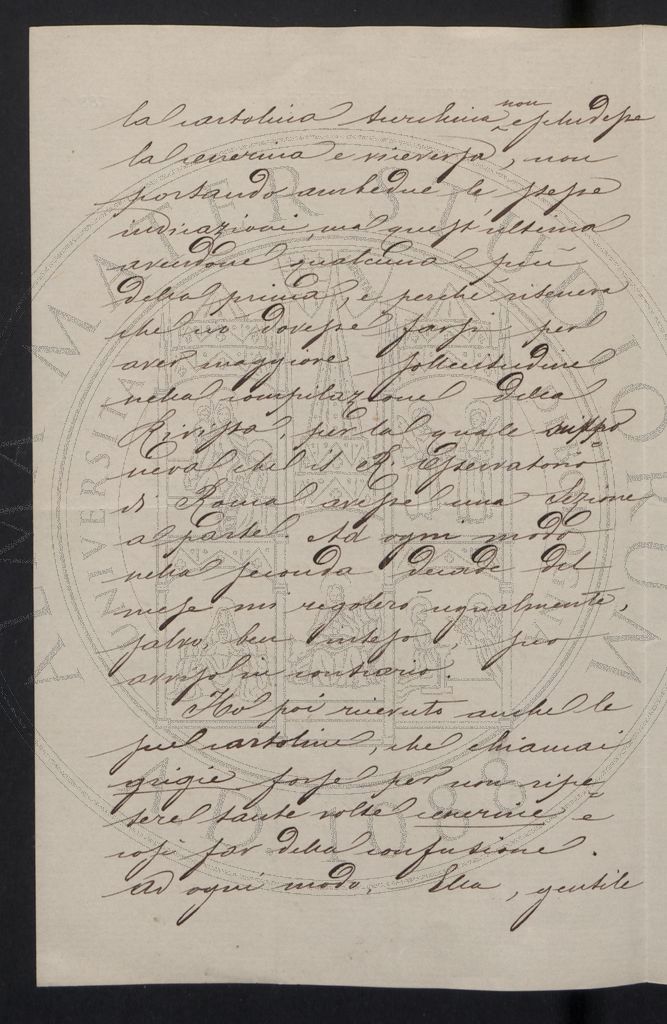 la cartolina turchina non escludesse
la cenerina e viceversa, non
portando ambedue le stesse
indicazioni, ma quest'ultima
avendone qualcuna più
della prima, e perché riteneva
che ciò dovesse farsi per
aver maggiore sollecitudine
nella compilazione della
Rivista, per la quale suppo=
neva che il R. Osservatorio
di Roma avesse una Sezione
a parte. Ad ogni modo
nella seconda decade del
mese mi regolerò ugualmente,
salvo, ben inteso, suo
avviso in contrario.
Ho poi ricevuto anche le
sue cartoline, che chiamai
grigie forse per non ripe=
tere tante volte cenerine e
così far della confusione.
Ad ogni modo, Ella, gentile
ALMA MATER STUDIORUM
UNIVERSITÀ
A.D. 1088